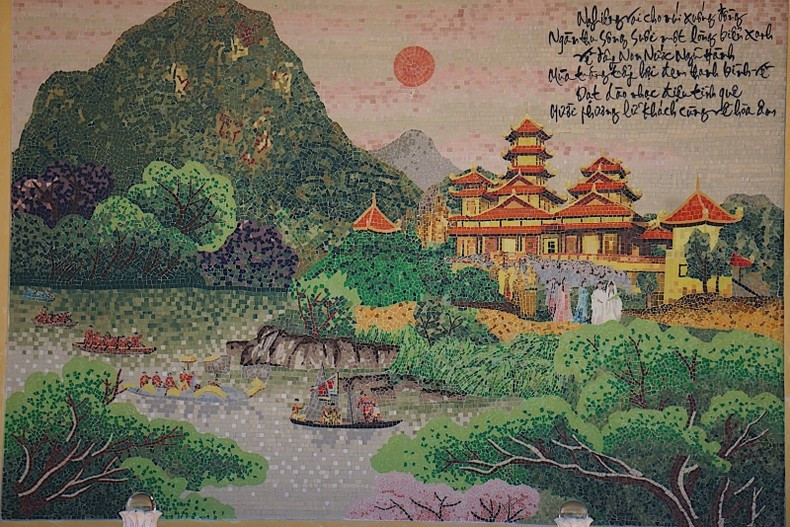 Nghiêng vai cho núi xuống đồng
Ngàn thu sông suối một lòng biển xanh
Về đây Non Nước Ngũ Hành
Mùa trăng đem thanh bình về
Dạt dào nhạc điệu tình quê
Mười phương lữ khách cùng về hòa